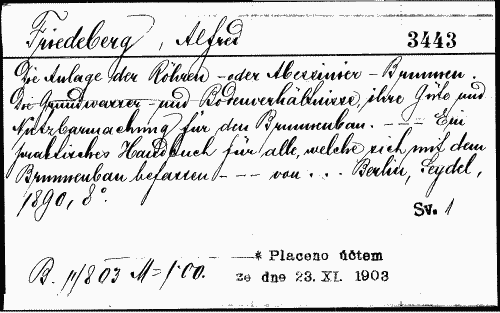 Friedeberg, Alfred 3443
Die Anlage der Röhren - oder Abessinier - Brunnen.
Die Grundwasser - und Bodenverhältnisse, ihre Güte und
Nutzbarmachung für den Brunnenbau. - - - Ein
praktisches Handbuch für alle, welche sich mit dem
Brunnenbau befassen - - - von . . . Berlin, Seydel,
1890, 8°.
Sv. 1
* Placeno účtem
B. 11/8 03 M = 1·00. ze dne 23. XI. 1903